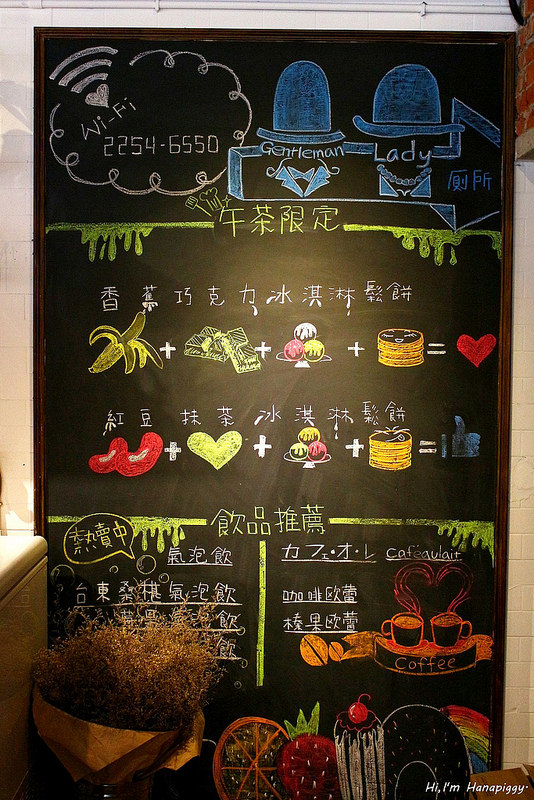 Wi-Fi
2254-6550
Gentleman
Lady
廁所
午茶限定
香蕉巧克力冰淇淋鬆餅
+ + + =
紅豆抹茶冰淇淋鬆餅
+ + + =
飲品推薦
熱賣中
氣泡飲
台東桑椹氣泡飲
氣泡飲
飲
カフェ・オ・レ caféaulait
咖啡歐蕾
榛果歐蕾
Coffee
Hi,I'm Hanapiggy.